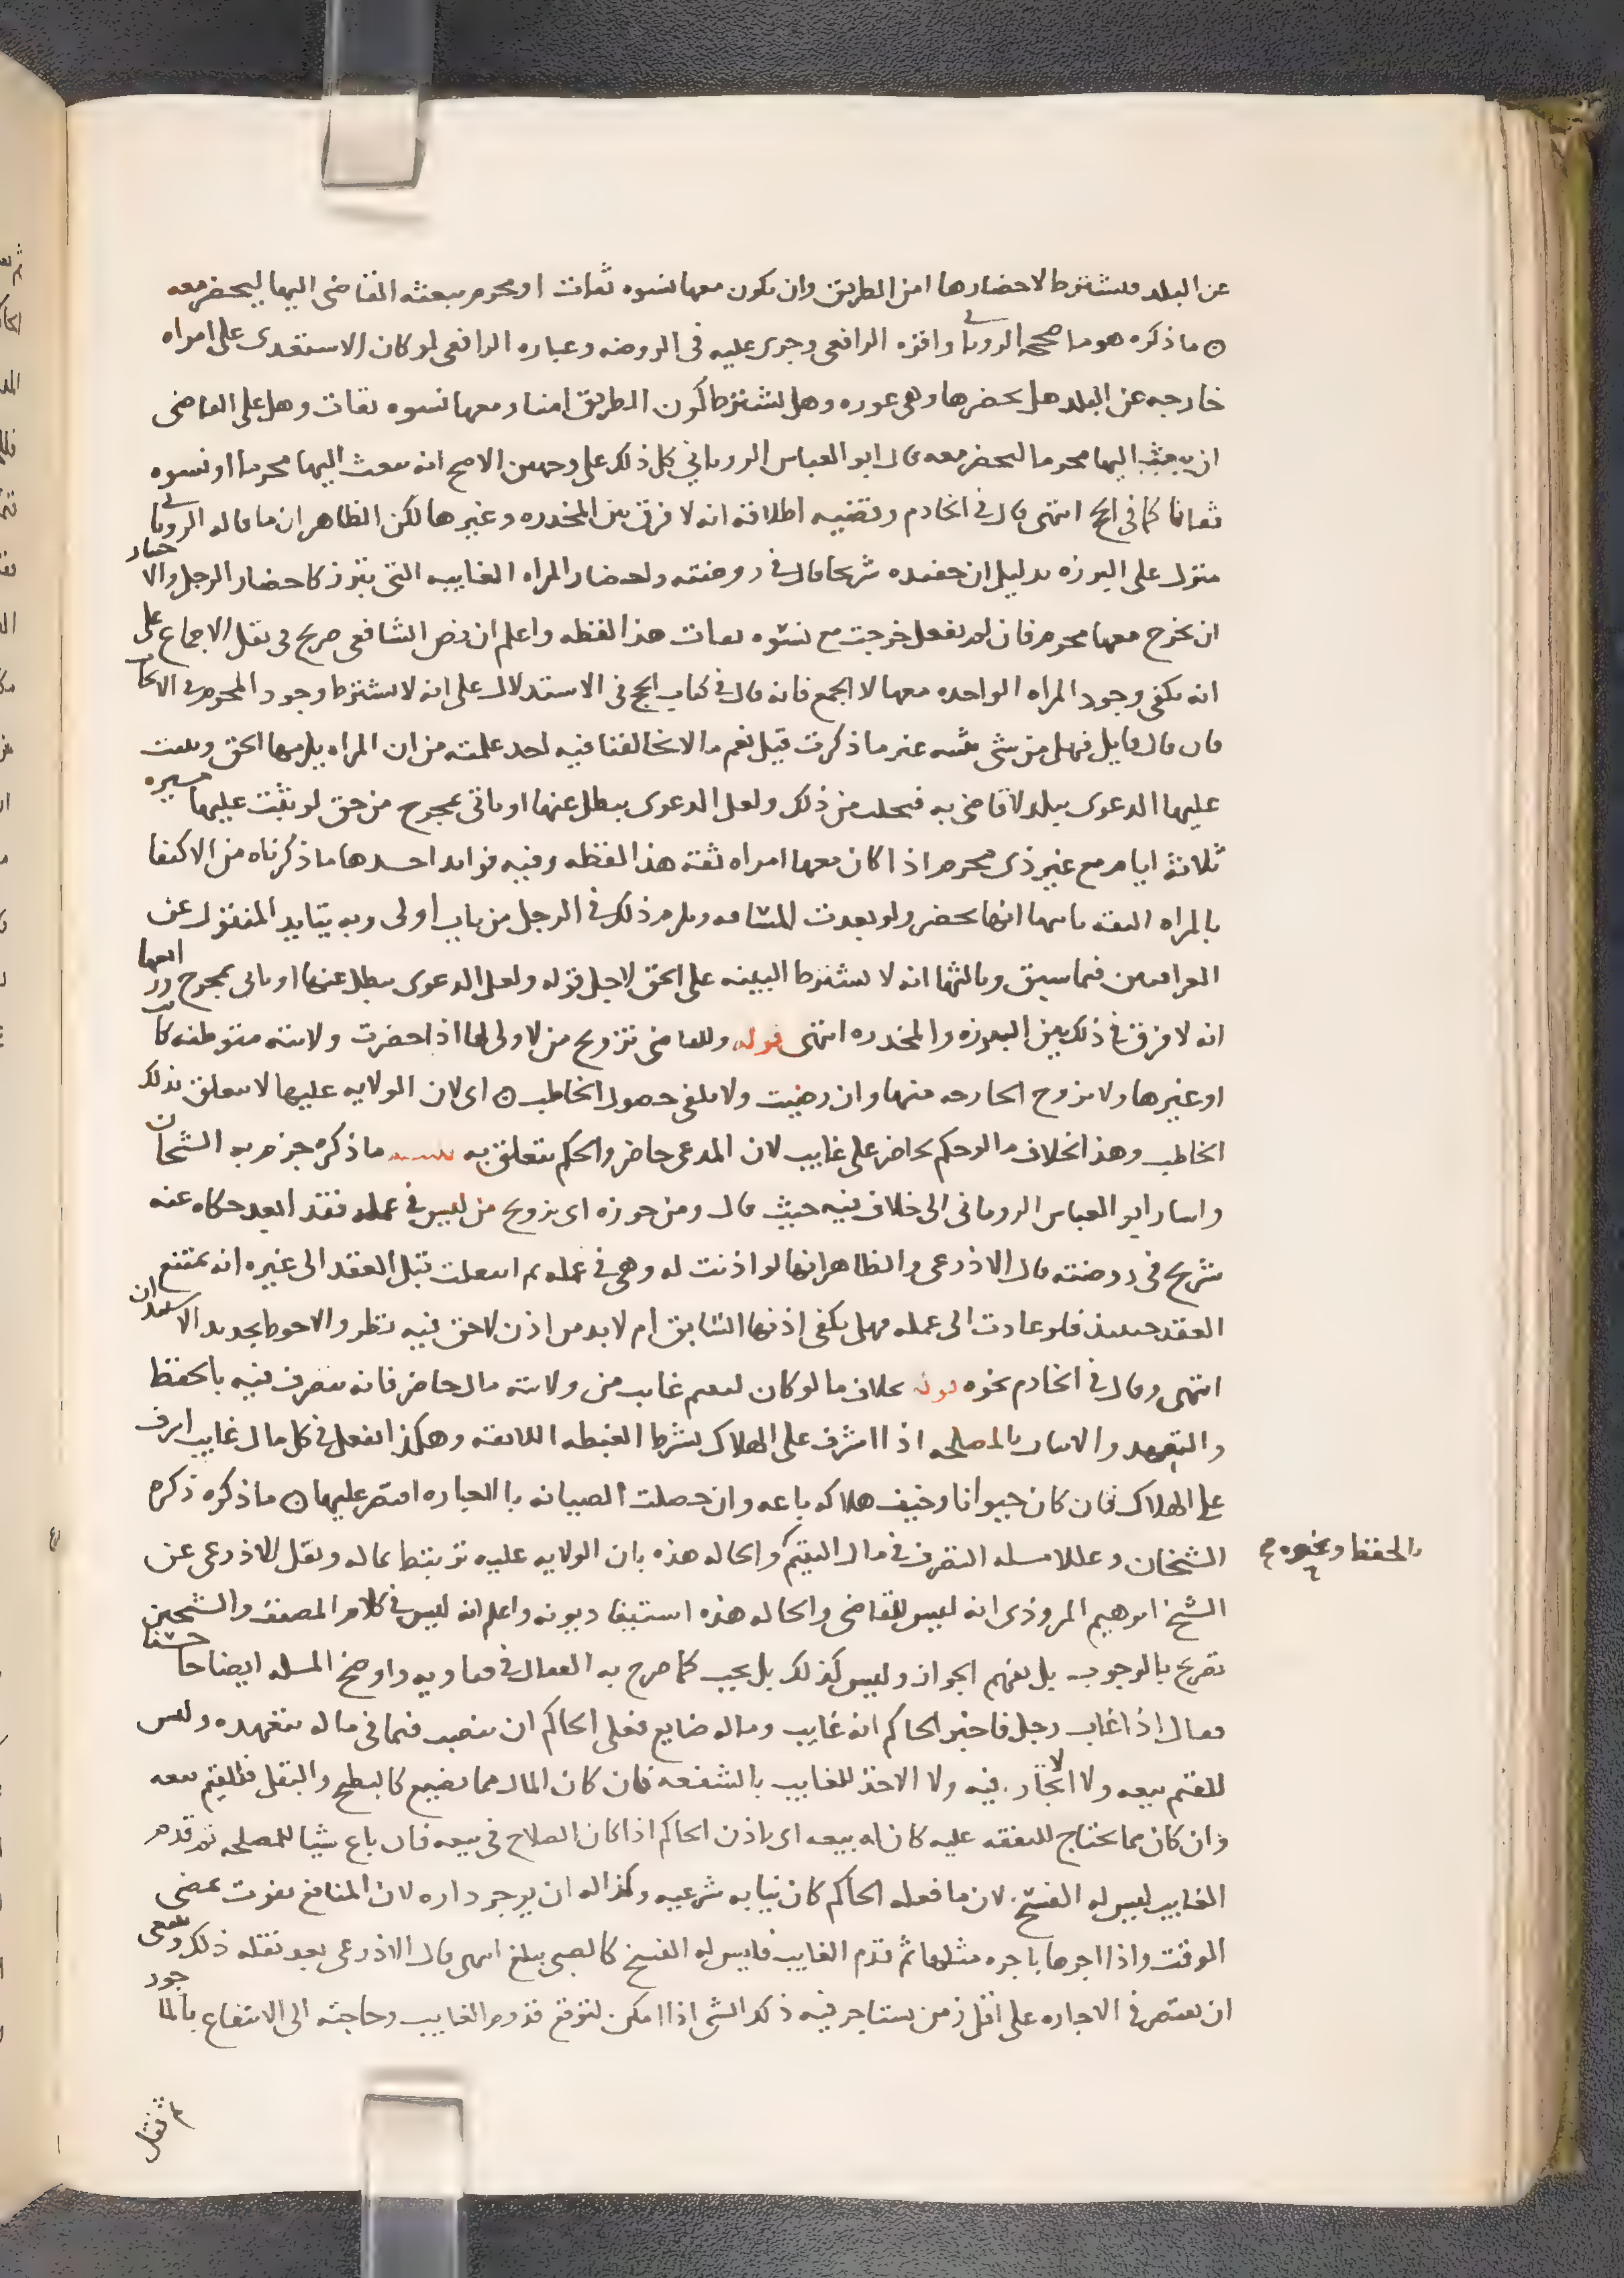 عن البلد ويشترط لاحضارها امن الطريق وان يكون معها نسوه ثقات او محرم يبعثه القاضى اليها ليحضر معه
ما ذكره هو ما صححه الرويانى واقره الرافعى وجرى عليه فى الروضه وعباره الرافعى لو كان الاستعدى على امراه
خارجه عن البلد هل يحضرها وهى عوره وهل يشترط كون الطريق امنا ومعها نسوه ثقات وهل على القاضى
ان يبعث اليها محرما ليحضر معه قال ابو العباس الرويانى كل ذلك على وجهين الاصح انه يبعث اليها محرما او نسوه
ثقاتا كما فى الحج انتهى قال فى الخادم وقضيه اطلاقه انه لا فرق بين المخدره وغيرها لكن الظاهر ان ما قاله الرويانى
منزل على البرزه بدليل ان حفيده شريحا قال فى روضته واحضار المراه الغايبه التى تبرز كاحضار الرجل والاختيار
ان يخرج معها محرم فان لم يفعل خرجت مع نسوه ثقات هذا لفظه واعلم ان نص الشافعى صريح فى نقل الاجماع على
انه يكفى وجود المراه الواحده معها لا الجمع فانه قال فى كتاب الحج فى الاستدلال على انه لا يشترط وجود المحرم فى الايجاب
فان قال قايل فهل من شى يشبه غير ما ذكرت قيل نعم ما لا يخالفنا فيه احد علمته من ان المراه يلزمها الحق ويثبت
عليها الدعوى ببلد لا قاضى به فيجلب من ذلك ولعل الدعوى يبطل عنها او ياتى بمجرح من حق لو يثبت عليها مسيره
ثلاثه ايام مع غير ذى محرم اذا كان معها امراه ثقة هذا لفظه وفيه فوايد احدها ما ذكرناه من الاكتفا
بالمراه الثقه ثانيها انها يحضر ولو بعدت المسافه ويلزم ذلك فى الرجل من باب اولى وبه يتايد المنقول عن
العراقيين فيما سبق وثالثها انه لا يشترط البينه على الحق لاجل قوله ولعل الدعوى يبطل عنها او ياتى بمجرح ورابعها
انه لا فرق فى ذلك بين البرزه والمخدره انتهى قوله وللقاضى تزويج من لا ولى لها اذا حضرت ولايته متوطنه كانت
او غيرها ولا يزوج الخارجه منها وان رضيت ولا يكفى حصول الخاطب اى لان الولايه عليها لا يتعلق بذلك
الخاطب وهذا بخلاف ما لو حكم بحاضر على غايب لان المدعى حاضر والحكم يتعلق به ما ذكره جزم به الشيخان
واشار ابو العباس الرويانى الى خلاف فيه حيث قال ومن جوزه اى تزويج من ليس فى عمله فقد ابعد حكاه عنه
شريح فى روضته قال الاذرعى والظاهر انها لو اذنت له وهى فى عمله ثم انتقلت قبل العقد الى غيره انه يمتنع
العقد حينيذ فلو عادت الى عمله فهل يكفى اذنها السابق ام لا بد من اذن لاحق فيه نظر والاحوط تجديد الاستيذان
انتهى وقال فى الخادم نحوه قوله بخلاف ما لو كان ليتيم غايب من ولايته مال حاضر فانه يتصرف فيه بالحفظ
والتعهد والاتيان بالمصلحه اذا اشرف على الهلاك بشرط الغبطه اللايقه وهكذا يفعل فى كل مال غايب اشرف
على الهلاك فان كان حيوانا وخيف هلاكه باعه وان حصلت الصيانه بالاجاره اقتصر عليها ما ذكره ذكره
الشيخان وعللا مسله التصرف فى مال اليتيم والحاله هذه بان الولايه عليه ترتبط بماله ونقل الاذرعى عن
بالحفظ ونحوه صح
الشيخ ابرهيم المروذى انه ليس للقاضى والحاله هذه استيفا ديونه واعلم انه ليس فى كلام المصنف والشيخين
تصريح بالوجوب بل يفهم الجواز وليس كذلك بل يجب كما صرح به القفال فى فتاويه واوضح المسله ايضاحا حسنا
فقال اذا غاب رجل فاخبر الحاكم انه غايب وماله ضايع فعلى الحاكم ان ينصب قيما فى ماله يتعهده وليس
للقيم بيعه ولا الاتجار فيه ولا الاخذ للغايب بالشفعه فان كان المال مما يضيع كالبطيخ والبقل فللقيم بيعه
وان كان مما يحتاج للنفقه عليه كان له بيعه اى باذن الحاكم اذا كان الصلاح فى بيعه فان باع شيا للمصلحه ثم قدم
الغايب ليس له الفسخ لان ما فعله الحاكم كان نيابه شرعيه وكذا له ان يوجر داره لان المنافع تفوت بمضى
الوقت واذا اجرها باجره مثلها ثم قدم الغايب فليس له الفسخ كالصبى يبلغ انتهى قال الاذرعى بعد نقله ذلك وينبغى
ان يقتصر فى الاجاره على اقل زمن يستاجر فيه ذلك الشى اذا امكن لتوقع قدوم الغايب وحاجته الى الانتفاع بالماجور
ثم نقل